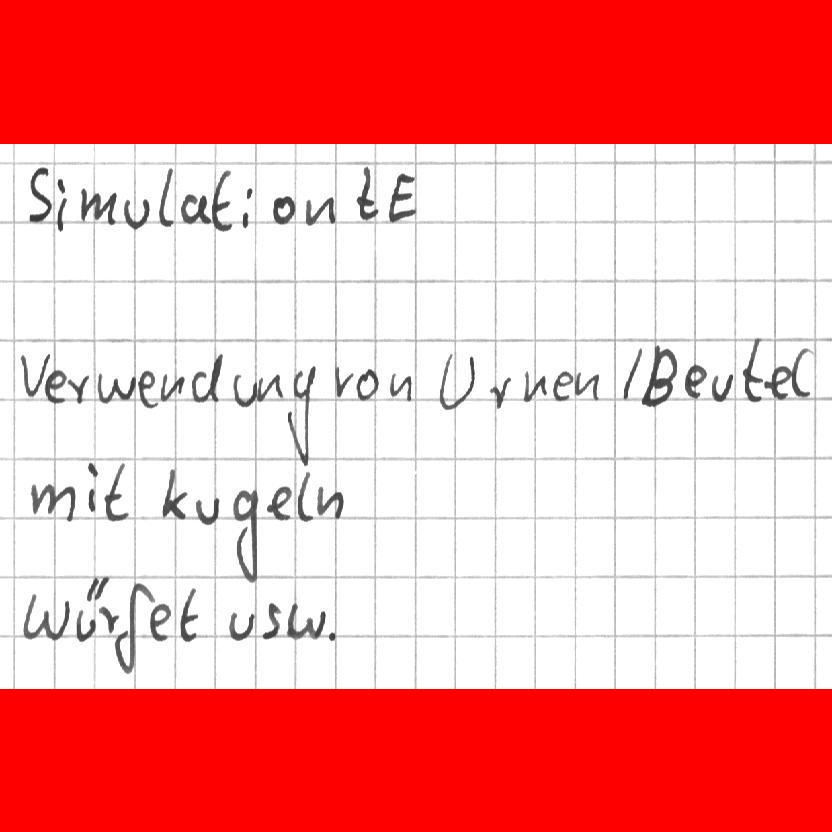 Simulation tE
Verwendung von Urnen/Beutel
mit kugeln
Würfet usw.